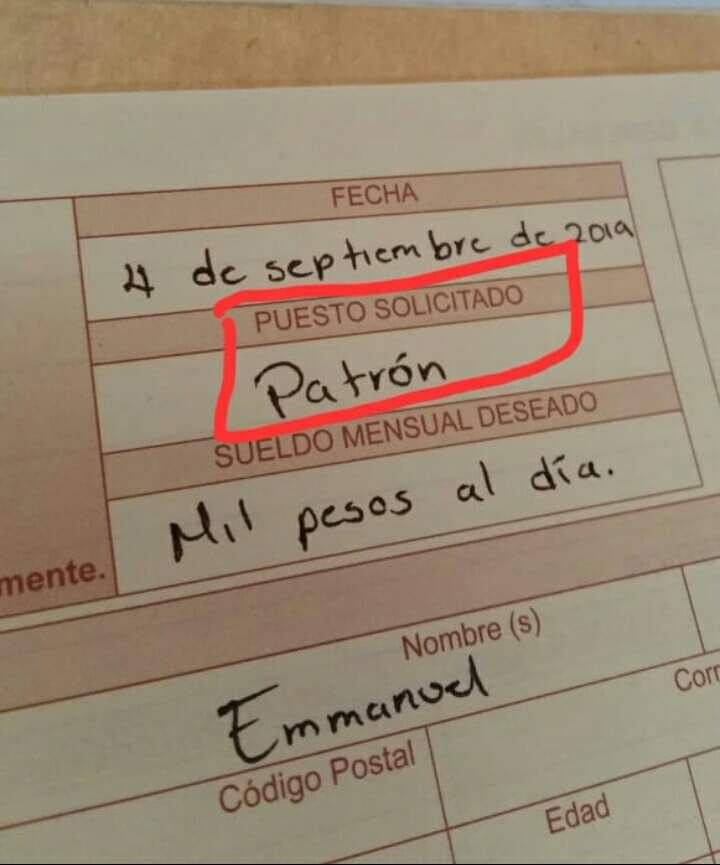 FECHA
4 de septiembre de 2019
PUESTO SOLICITADO
Patrón
SUELDO MENSUAL DESEADO
Mil pesos al día.
mente.
Nombre (s)
Emmanuel
Corr
Código Postal
Edad